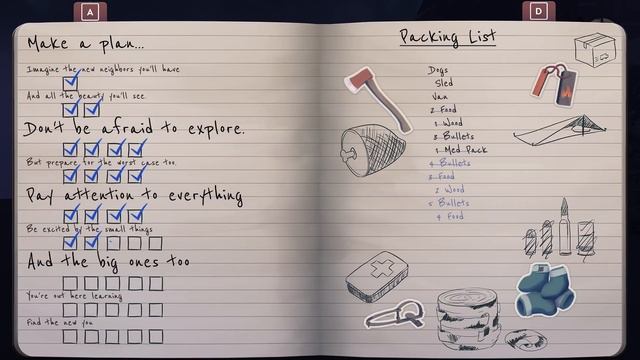 A
D
Make a plan...
Imagine the new neighbors you'll have
And all the beauty you'll see.
Don't be afraid to explore.
But prepare for the worst case too.
Pay attention to everything
Be excited by the small things
And the big ones too
You're out here learning
Find the new you
Packing List
Dogs
Sled
Van
2 Food
1 Wood
3 Bullets
1 Med Pack
4 Bullets
3 Food
2 Wood
5 Bullets
4 Food